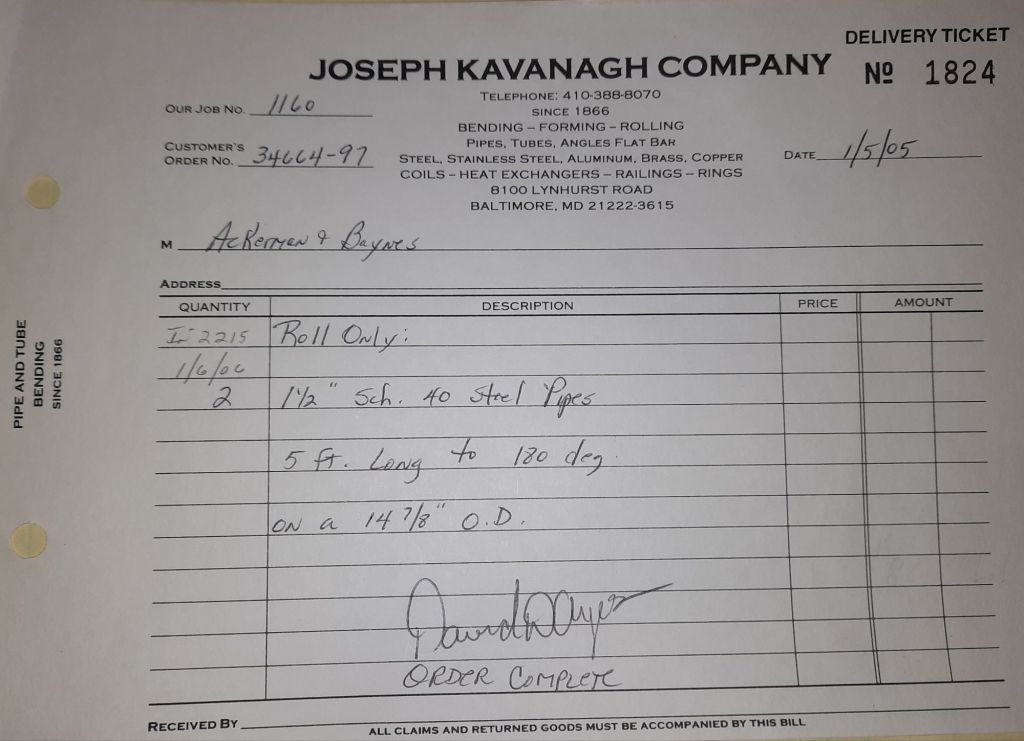 DELIVERY TICKET
JOSEPH KAVANAGH COMPANY
Nº 1824
TELEPHONE: 410-388-8070
SINCE 1866
BENDING – FORMING – ROLLING
PIPES, TUBES, ANGLES FLAT BAR
STEEL, STAINLESS STEEL, ALUMINUM, BRASS, COPPER
COILS – HEAT EXCHANGERS – RAILINGS – RINGS
8100 LYNHURST ROAD
BALTIMORE, MD 21222-3615
OUR JOB NO. 1160
CUSTOMER'S
ORDER NO. 34664-97
DATE 1/5/05
M Ackerman & Baynes
ADDRESS
QUANTITY DESCRIPTION PRICE AMOUNT
2215 Roll Only:
1/6/06
2 1½" Sch. 40 Steel Pipes
5 ft. Long to 180 deg.
on a 14 7/8" O.D.
ORDER COMPLETE
RECEIVED BY
ALL CLAIMS AND RETURNED GOODS MUST BE ACCOMPANIED BY THIS BILL
PIPE AND TUBE
BENDING
SINCE 1866